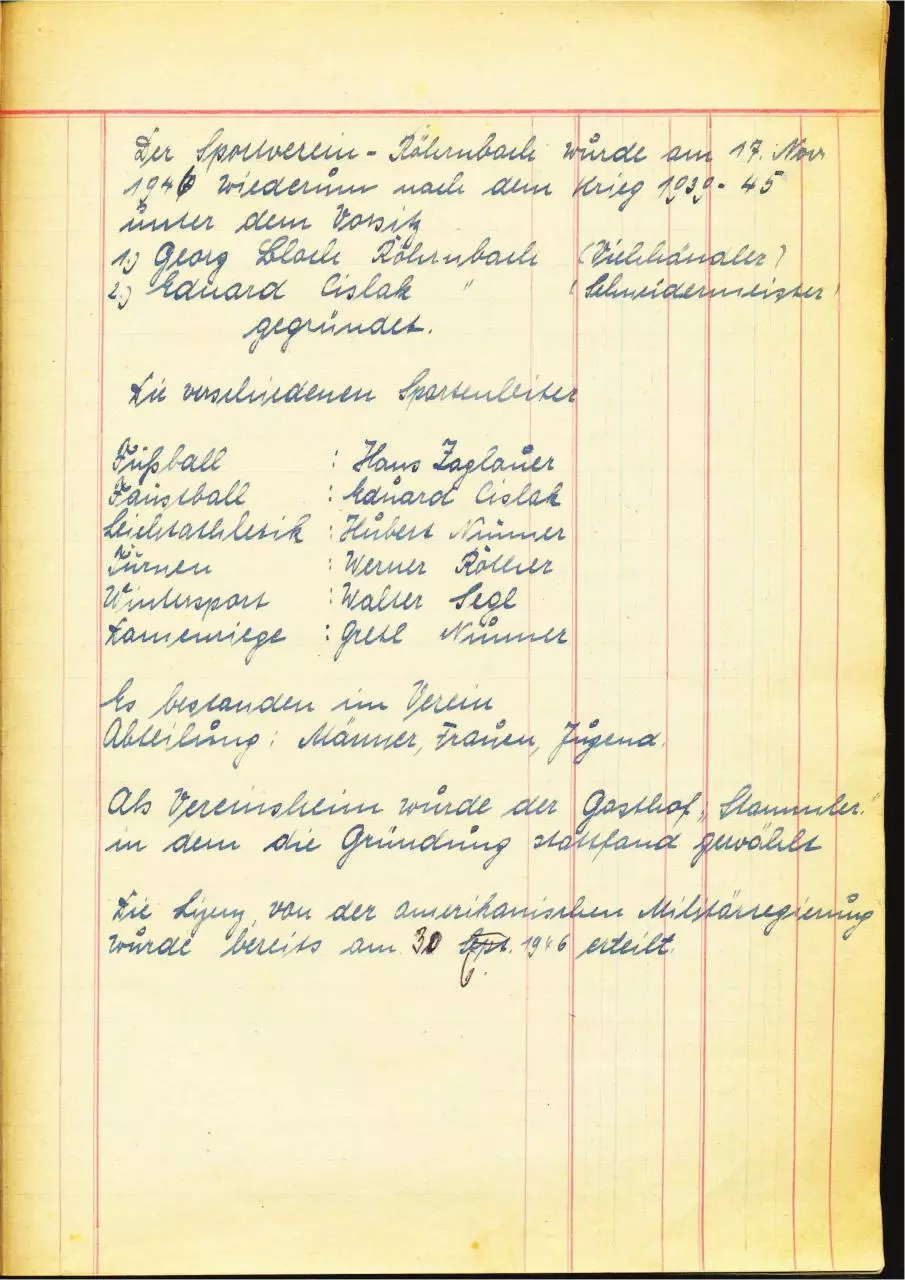 Der Sportverein - Röhrnbach wurde am 17. Nov.
1946 wiederum nach dem Krieg 1939 - 45
unter dem Vorsitz
1.) Georg Bloch Röhrnbach (Viehhändler)
2.) Eduard Cislak " (Schneidermeister)
gegründet.
Die verschiedenen Spartenleiter
Fußball : Hans Zaglauer
Faustball : Eduard Cislak
Leichtathletik : Hubert Nummer
Turnen : Werner Röther
Wintersport : Walter Segl
Damenriege : Gretl Nummer
Es bestanden im Verein
Abteilung : Männer, Frauen, Jugend.
Als Vereinsheim wurde der Gasthof „Stammler"
in dem die Gründung stattfand gewählt
Die Lizenz, von der amerikanischen Militärregierung
wurde bereits am 30 6. 1946 erteilt.